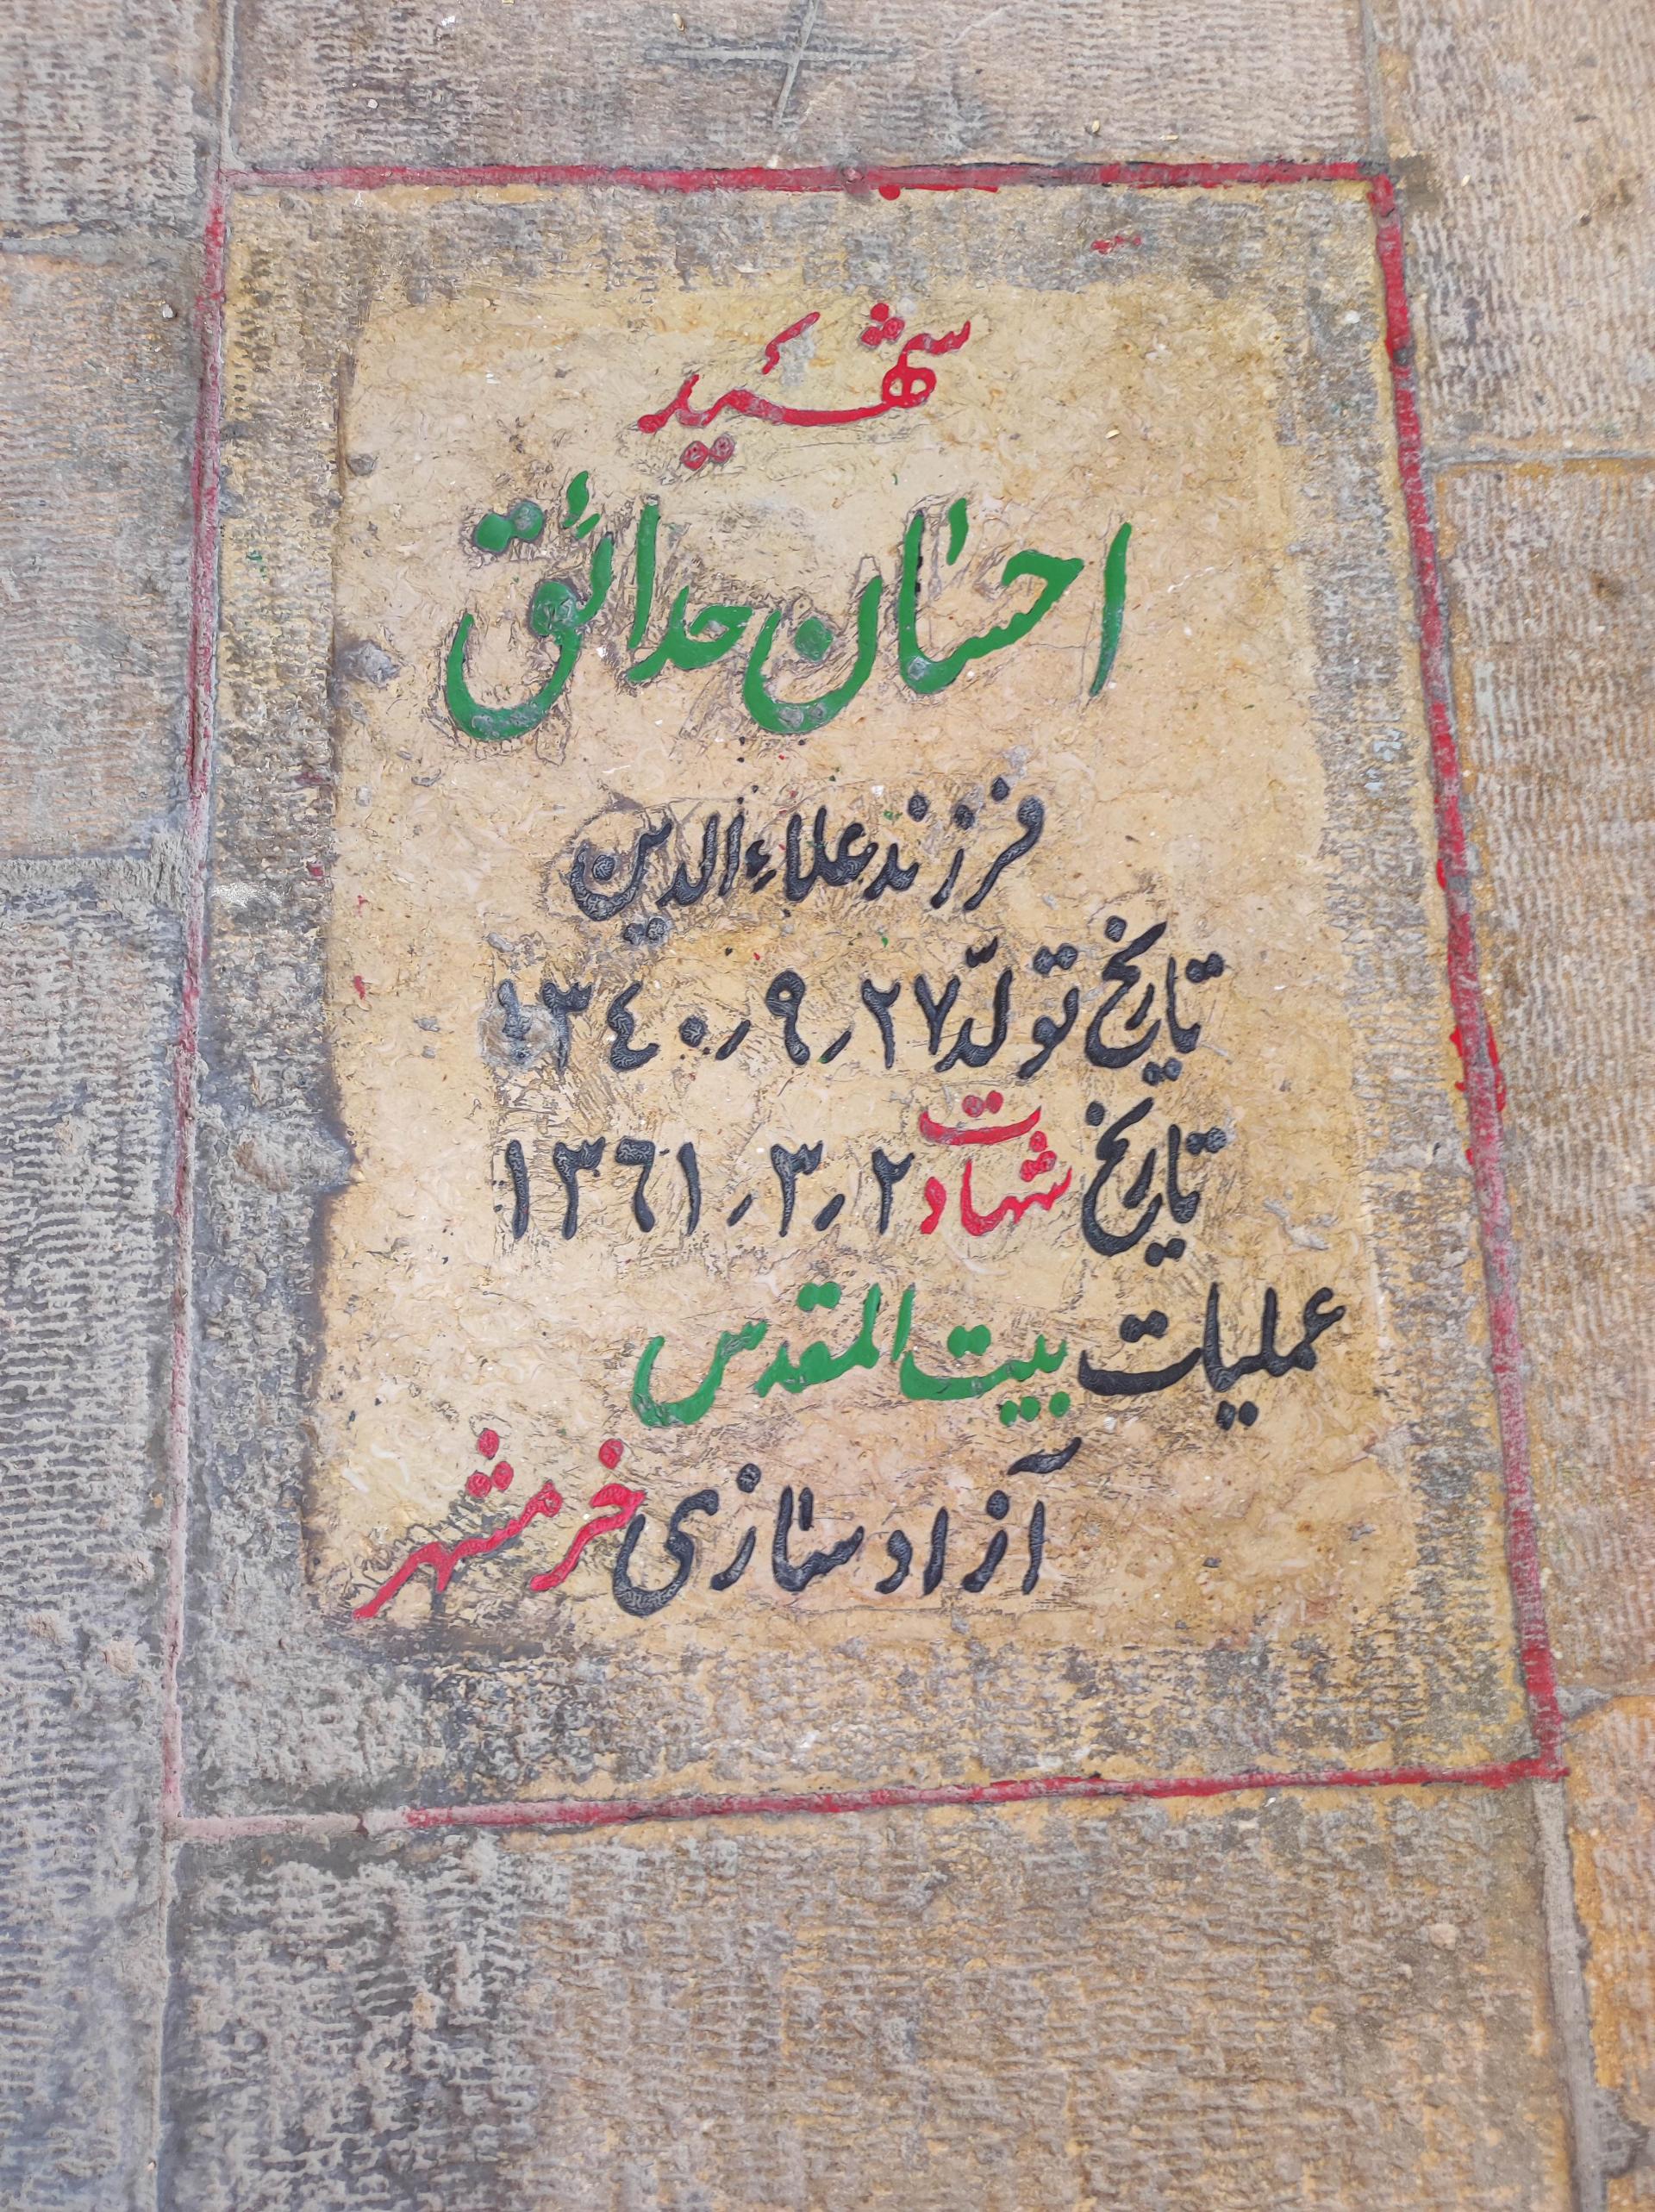 شهید
احسان حدائق
فرزند علاءالدین
تاریخ تولّد ۲۷٫۹٫۱۳٤۰
تاریخ شهادت ۲٫۳٫۱۳٦۱
عملیات بیت المقدس
آزادسازی خرمشهر